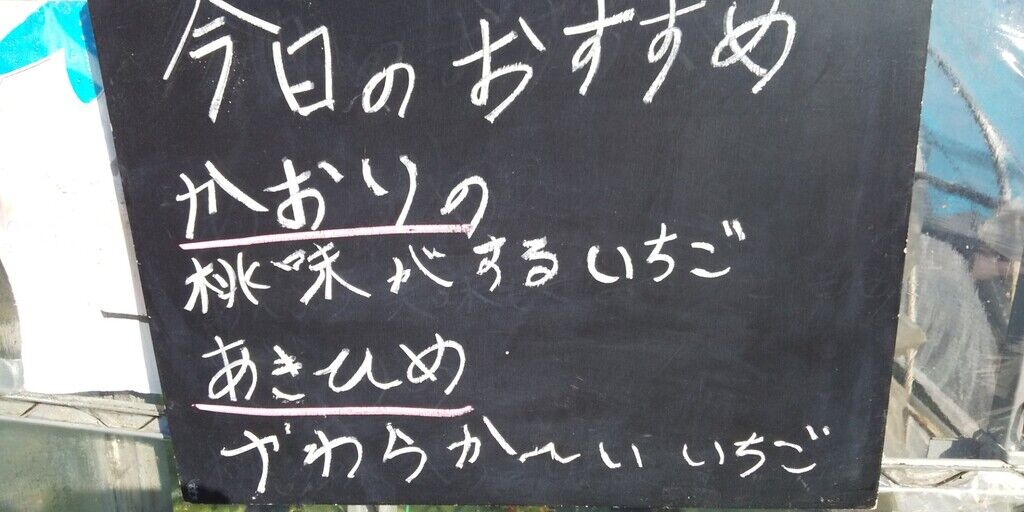 今日のおすすめ
かおりの
桃味がするいちご
あきひめ
やわらか〜いいちご